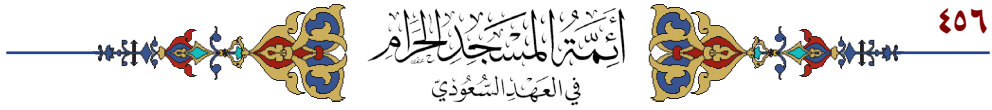 ٤٥٦
أَئِمَّةُ المَسْجِدِ الحَرَامِ
فِي العَهْدِ السُّعُودِيّ